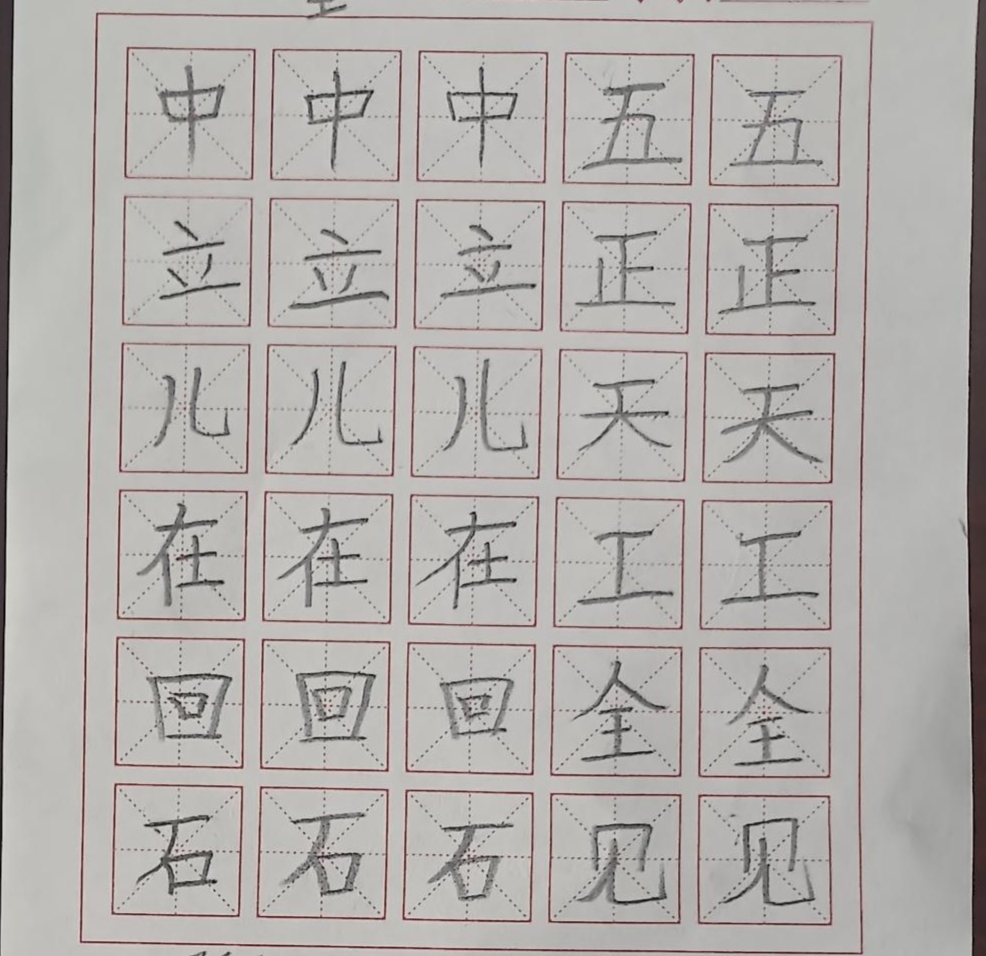 中中中五五
立立立正正
儿儿儿天天
在在在工工
回回回全全
石石石见见